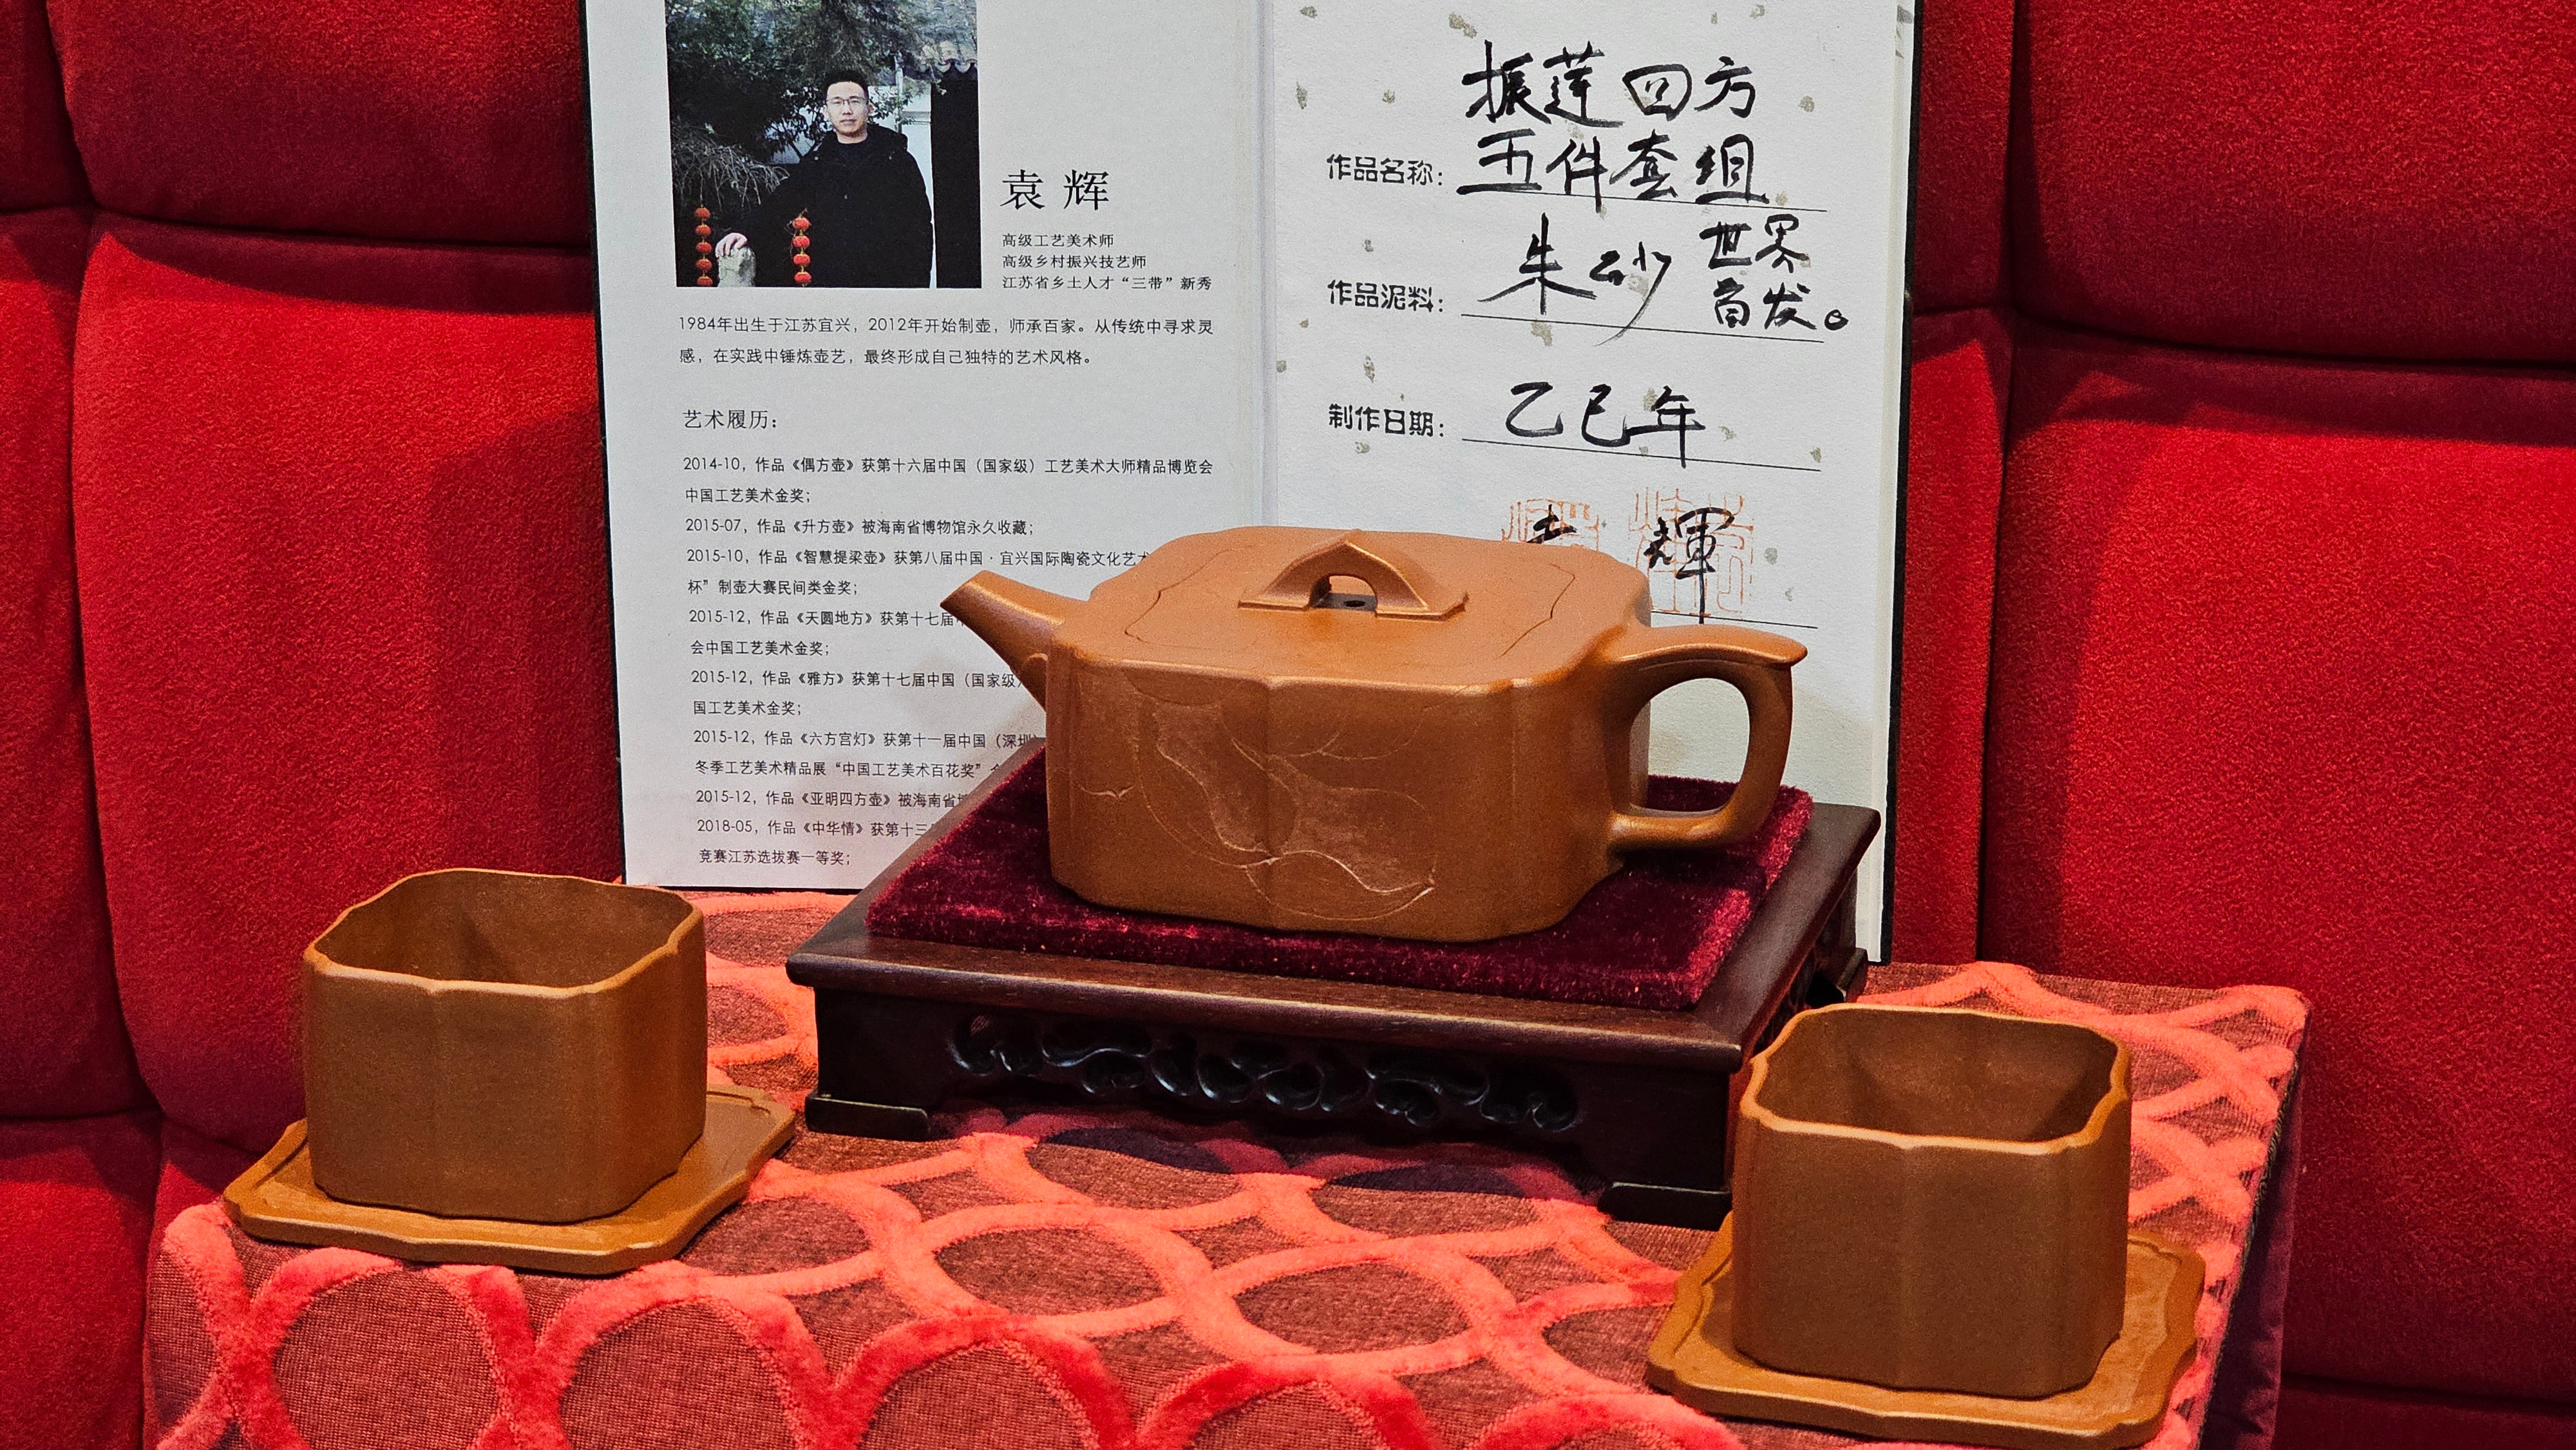 袁 辉
高级工艺美术师
高级乡村振兴技艺师
江苏省乡土人才“三带”新秀
1984年出生于江苏宜兴，2012年开始制壶，师承百家。从传统中寻求灵
感，在实践中锤炼壶艺，最终形成自己独特的艺术风格。
艺术履历：
2014-10，作品《偶方壶》获第十六届中国（国家级）工艺美术大师精品博览会
中国工艺美术金奖；
2015-07，作品《升方壶》被海南省博物馆永久收藏；
2015-10，作品《智慧提梁壶》获第八届中国·宜兴国际陶瓷文化艺术
杯”制壶大赛民间类金奖；
2015-12，作品《天圆地方》获第十七届
会中国工艺美术金奖；
2015-12，作品《雅方》获第十七届中国（国家级）
国工艺美术金奖；
2015-12，作品《六方宫灯》获第十一届中国（深圳）
冬季工艺美术精品展“中国工艺美术百花奖”
2015-12，作品《亚明四方壶》被海南省
2018-05，作品《中华情》获第十三
竞赛江苏选拔赛一等奖；
振莲四方
作品名称：五件套组
作品泥料：朱砂 世界
首发。
制作日期：乙巳年
輝